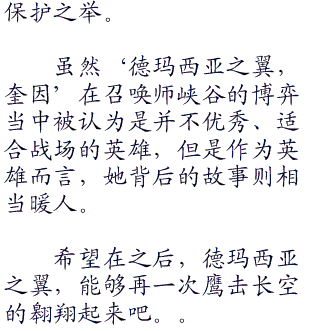 保护之举。
虽然‘德玛西亚之翼，
奎因’在召唤师峡谷的博弈
当中被认为是并不优秀、适
合战场的英雄，但是作为英
雄而言，她背后的故事则相
当暖人。
希望在之后，德玛西亚
之翼，能够再一次鹰击长空
的翱翔起来吧。。